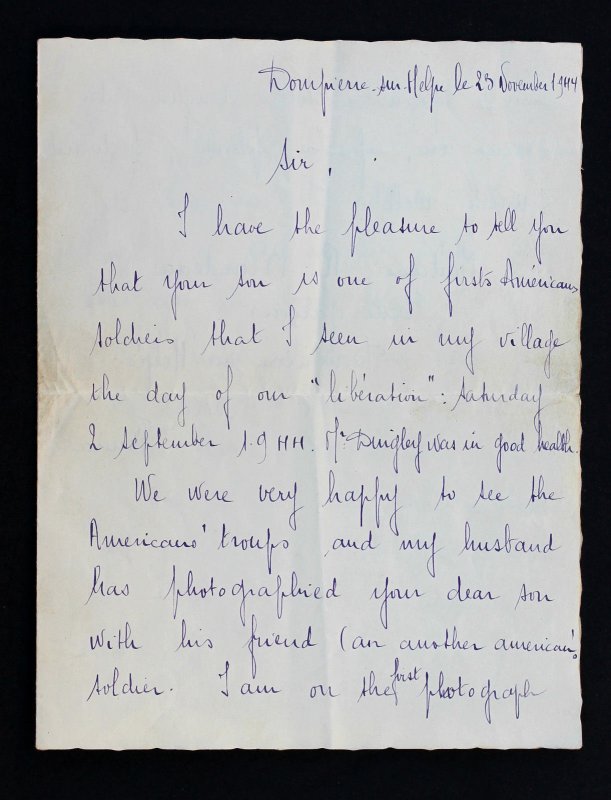 Dompierre-sur-Helpe le 23 November 1944
Sir,
I have the pleasure to tell you
that your son is one of firsts Américans
soldiers that I seen in my village
the day of our "libération": saturday
2 september 1944. Mr Duigley was in good health.
We were very happy to see the
Americans' troups and my husband
has photographied your dear son
with his friend (an another american)
soldier. I am on the first photograph